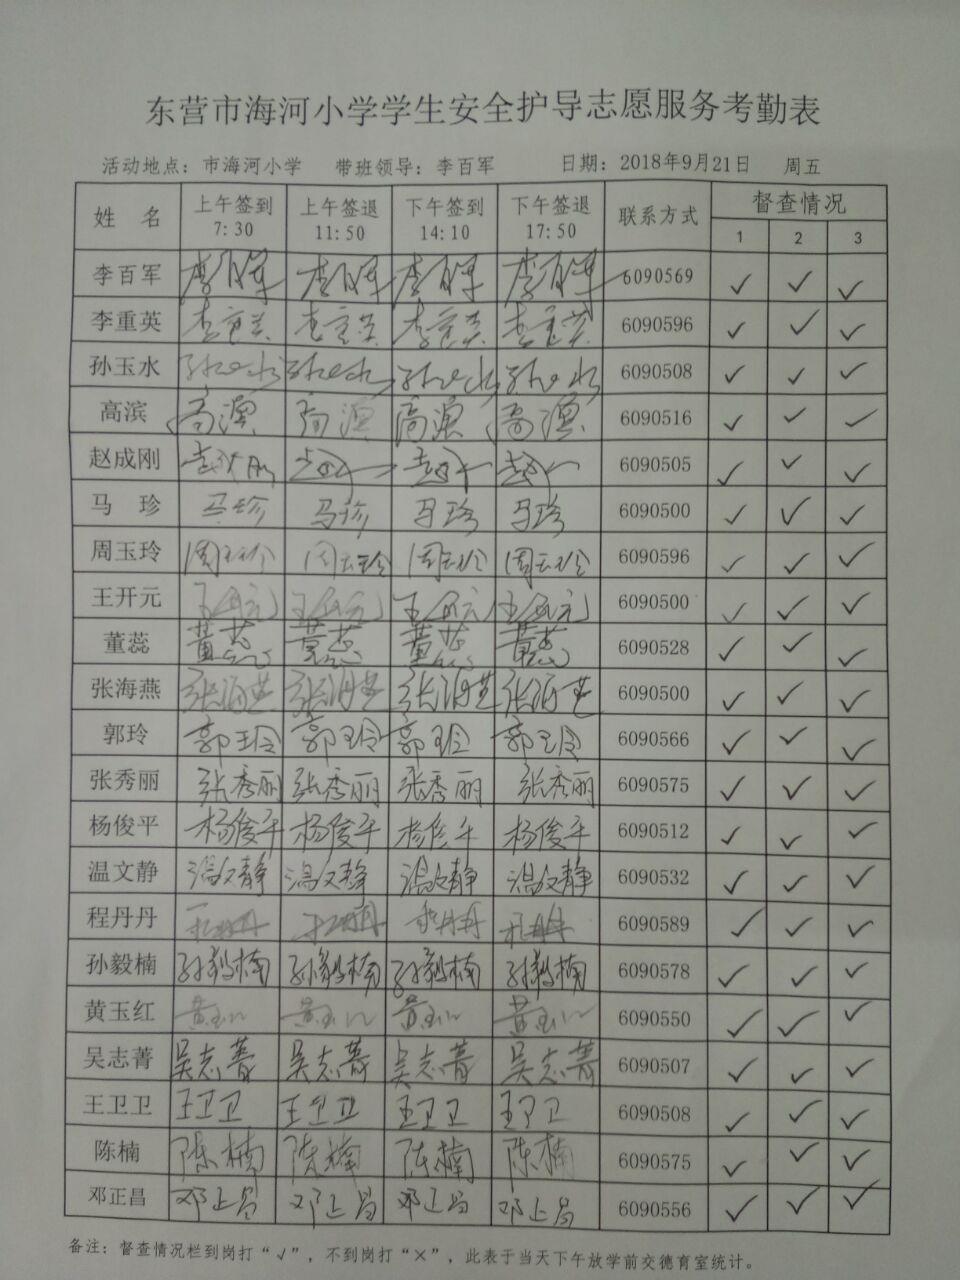 东营市海河小学学生安全护导志愿服务考勤表
活动地点：市海河小学 带班领导：李百军 日期：2018年9月21日 周五
姓 名 上午签到 7:30 上午签退 11:50 下午签到 14:10 下午签退 17:50 联系方式 督查情况 1 2 3
李百军 李百军 李百军 李百军 李百军 6090569 ✓ ✓ ✓
李重英 李重英 李重英 李重英 李重英 6090596 ✓ ✓ ✓
孙玉水 孙玉水 孙玉水 孙玉水 孙玉水 6090508 ✓ ✓ ✓
高滨 高滨 高滨 高滨 高滨 6090516 ✓ ✓ ✓
赵成刚 赵成刚 6090505 ✓ ✓ ✓
马 珍 马珍 马珍 马珍 马珍 6090500 ✓ ✓ ✓
周玉玲 周玉玲 周玉玲 周玉玲 周玉玲 6090596 ✓ ✓ ✓
王开元 王开元 王开元 王开元 王开元 6090500 ✓ ✓ ✓
董蕊 董蕊 董蕊 董蕊 董蕊 6090528 ✓ ✓ ✓
张海燕 张海燕 张海燕 张海燕 张海燕 6090500 ✓ ✓ ✓
郭玲 郭玲 郭玲 郭玲 郭玲 6090566 ✓ ✓ ✓
张秀丽 张秀丽 张秀丽 张秀丽 张秀丽 6090575 ✓ ✓ ✓
杨俊平 杨俊平 杨俊平 杨俊平 杨俊平 6090512 ✓ ✓ ✓
温文静 温文静 温文静 温文静 温文静 6090532 ✓ ✓ ✓
程丹丹 程丹丹 程丹丹 程丹丹 程丹丹 6090589 ✓ ✓ ✓
孙毅楠 孙毅楠 孙毅楠 孙毅楠 孙毅楠 6090578 ✓ ✓ ✓
黄玉红 黄玉红 黄玉红 黄玉红 黄玉红 6090550 ✓ ✓ ✓
吴志菁 吴志菁 吴志菁 吴志菁 吴志菁 6090507 ✓ ✓ ✓
王卫卫 王卫卫 王卫卫 王卫卫 王卫卫 6090508 ✓ ✓ ✓
陈楠 陈楠 陈楠 陈楠 陈楠 6090575 ✓ ✓ ✓
邓正昌 邓正昌 邓正昌 邓正昌 邓正昌 6090556 ✓ ✓ ✓
备注：督查情况栏到岗打“√”，不到岗打“×”，此表于当天下午放学前交德育室统计。